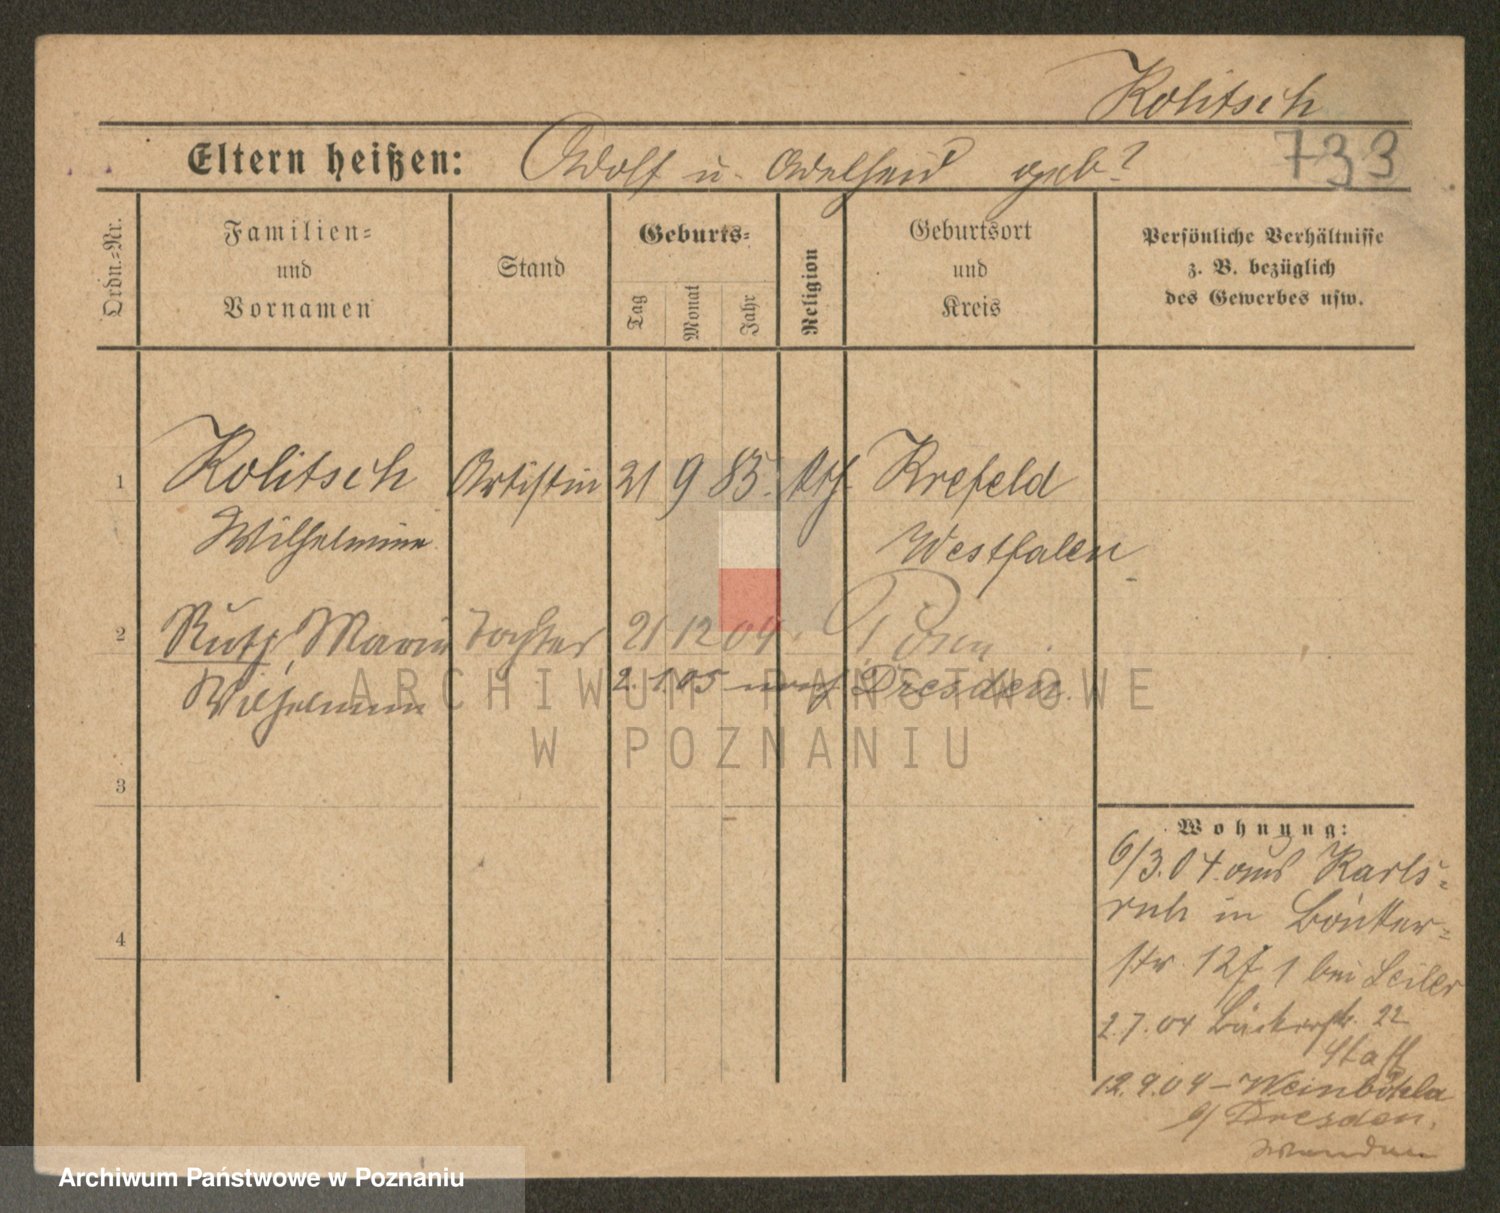 Kolitsch
Eltern heißen: Adolf u. Adelheid geb?
733
Ordn.-Nr.
Familien-
und
Vornamen
Stand
Geburts-
Tag
Monat
Jahr
Religion
Geburtsort
und
Kreis
Persönliche Verhältnisse
z. B. bezüglich
des Gewerbes usw.
1 Kolitsch Artistin 21 9 85. kth. Krefeld
Wilhelmine Westfalen
2 Ruth, Marie Tochter 21 12 04. Posen
Wilhelmine 2. 1.05 nach Dresden.
3
4
Wohnung:
6/3.04. aus Karls-
ruh in
str. 12 I bei Seiler
2.7.04 Bäckerstr. 22
12.9.04 - Weinböhla
b/ Dresden.
ARCHIWUM PAŃSTWOWE
W POZNANIU
Archiwum Państwowe w Poznaniu